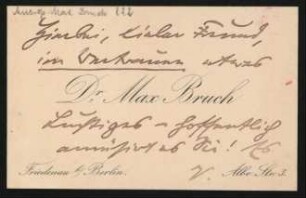 Hierbei, lieber Freund,
im Vertrauen etwas
Dr. Max Bruch
Lustiges – hoffentlich
amüsirt es Sie!
Friedenau b/ Berlin. Albe Str. 3.